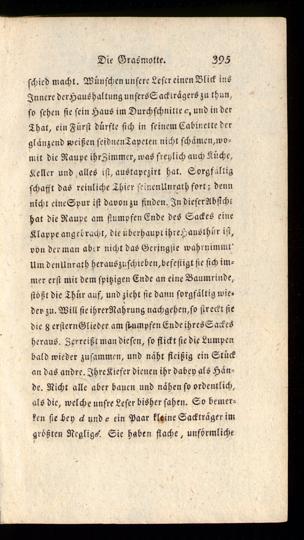 Die Grasmotte. 395
schied macht. Wünschen unsere Leser einen Blick ins
Innere der Haushaltung unsers Sackträgers zu thun,
so sehen sie sein Haus im Durchschnitte c, und in der
That, ein Fürst dürfte sich in seinem Cabinette der
glänzend weißen seidnen Tapeten nicht schämen, wo-
mit die Raupe ihr Zimmer, was freylich auch Küche,
Keller und alles ist, austapezirt hat. Sorgfältig
schafft das reinliche Thier seinen Unrath fort; denn
nicht eine Spur ist davon zu finden. In dieser Absicht
hat die Raupe am stumpfen Ende des Sackes eine
Klappe angebracht, die überhaupt ihre Hausthür ist,
von der man aber nicht das Geringste wahrnimmt
Um den Unrath herauszuschieben, befestigt sie sich im-
mer erst mit dem spitzigen Ende an eine Baumrinde,
stößt die Thür auf, und zieht sie dann sorgfältig wie-
der zu. Will sie ihrer Nahrung nachgehen, so streckt sie
die 8 ersten Glieder am stumpfen Ende ihres Sackes
heraus. Zerreißt man diesen, so flickt sie die Lumpen
bald wieder zusammen, und näht fleißig ein Stück
an das andre. Ihre Kiefer dienen ihr dabey als Hän-
de. Nicht alle aber bauen und nähen so ordentlich,
als die, welche unsre Leser bisher sahen. So bemer-
ken sie bey d und e ein Paar kleine Sackträger im
größten Neglige. Sie haben flache, unförmliche